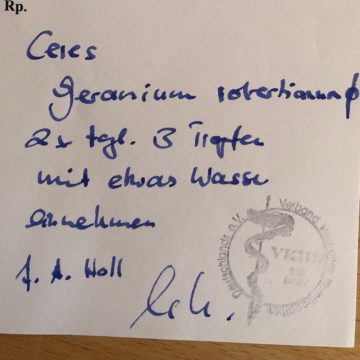 Rp.
Ceres
Geranium robertianum ø
2x tgl. 3 Tropfen
mit etwas Wasser
einnehmen
Deutschlands e.V. Verband
VKHD